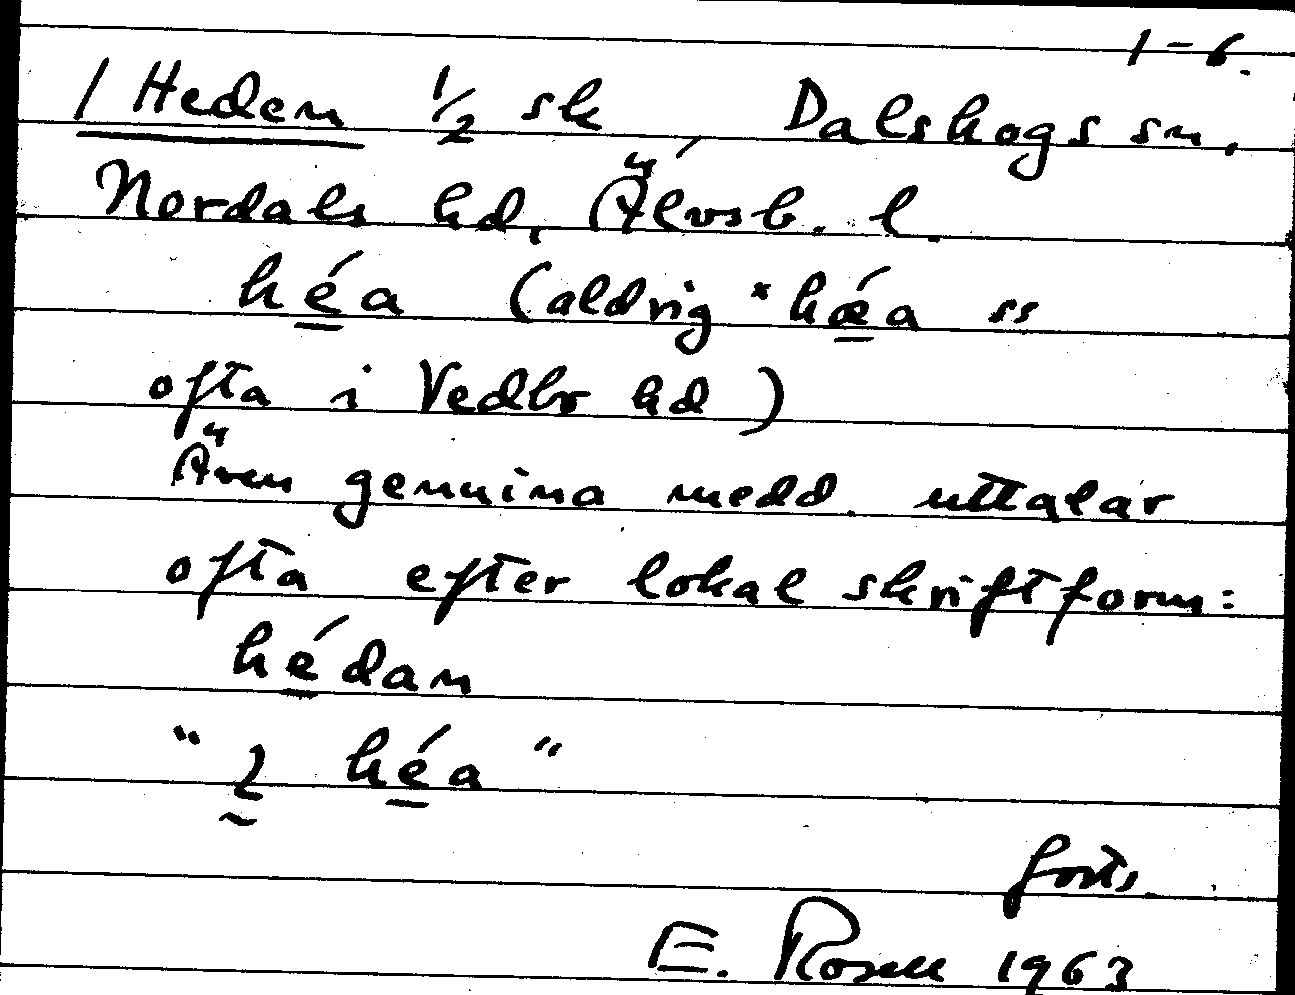 1-6.
1 Hedem 1/2 sk Dalskogs sn,
Nordals hd, Älvsb. l.
hé̱a (aldrig *hǽ̱a ss
ofta i Vedbo hd)
Även genuina medd. uttalar
ofta efter lokal skriftform:
hé̱dam
" hé̱a "
forts.
E. Rosell 1963